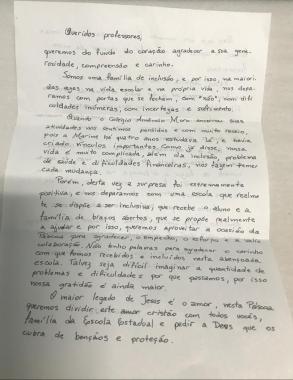 Queridos professores,
queremos do fundo do coração agradecer a sua gene-
rosidade, compreensão e carinho.
Somos uma família de inclusão, e por isso, na maioria
das vezes na vida escolar e na própria vida, nos depa-
ramos com portas que se fecham, com "não", com difi-
culdades inúmeras, com incertezas e sofrimento.
Quando o Colégio Antônio suas
atividades nos sentimos perdidos e com muito receio,
pois a Marina há quatro anos estudava lá, e havia
criado vínculos importantes. Como já disse, nossa
vida é muito complicada, além da inclusão, problema
de saúde e dificuldades financeiras, nos fazem temer
cada mudança.
Porém, desta vez a surpresa foi extremamente
positiva, e nos deparamos com uma escola que realmen
te se dispõe a ser inclusiva, que recebe o aluno e a
família de braços abertos, que se propõe realmente
a ajudar e por isso, queremos aproveitar a ocasião da
Páscoa para agradecer, o empenho, o esforço e a
colaboração. Não tenho palavras para agradecer o carinho
com que fomos recebidos e incluídos nesta abençoada
escola. Talvez seja difícil imaginar a quantidade de
problemas e dificuldades e por que passamos, por isso
nossa gratidão é ainda maior.
O maior legado de Jesus é o amor, nesta Páscoa
queremos dividir este amor cristão com todos vocês,
família da Escola Estadual e pedir a Deus que os
cubra de bençãos e proteção.